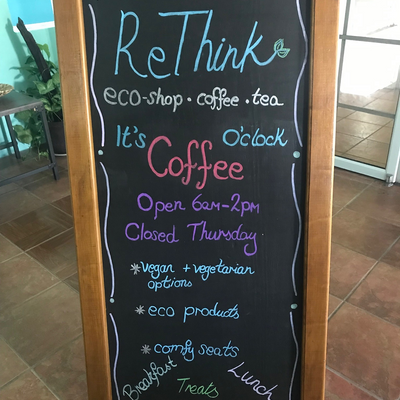 ReThink
eco-shop · coffee · tea
It's O'clock
Coffee
Open 6am-2pm
Closed Thursday
*vegan + vegetarian
options
*eco products
*comfy seats
Breakfast Treats Lunch